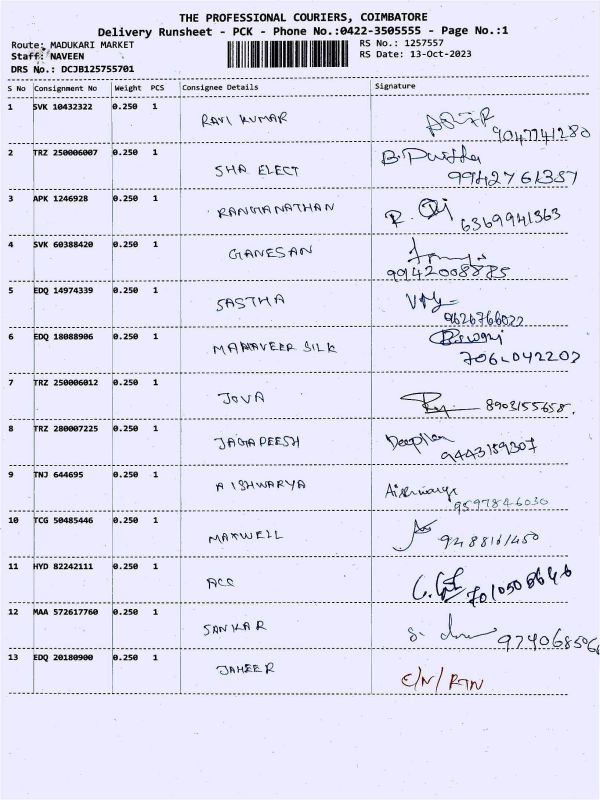 THE PROFESSIONAL COURIERS, COIMBATORE
Delivery Runsheet - PCK - Phone No.:0422-3505555 - Page No.:1
Route: MADUKARI MARKET
RS No.: 1257557
Staff: NAVEEN
RS Date: 13-Oct-2023
DRS No.: DCJB125755701
S No Consignment No Weight PCS Consignee Details Signature
1 SVK 10432322 0.250 1 RAVI KUMAR 9047741280
2 TRZ 250006007 0.250 1 SHA ELECT 9942761357
3 APK 1246928 0.250 1 RANGANATHAN 6369941363
4 SVK 60388420 0.250 1 GANESAN 9942008885
5 EDQ 14974339 0.250 1 SASTHA 9626766022
6 EDQ 18088906 0.250 1 MAHAVEER SILK
7 TRZ 250006012 0.250 1 JOVA 8903155658.
8 TRZ 280007225 0.250 1 JAGADEESH 9443159307
9 TNJ 644695 0.250 1 AISHWARYA Aishwarya 9597846030
10 TCG 50485446 0.250 1 MAXWELL 9488161450
11 HYD 82242111 0.250 1 ACC
12 MAA 572617760 0.250 1 SANKAR
13 EDQ 20180900 0.250 1 JAHEER C/N/RTN